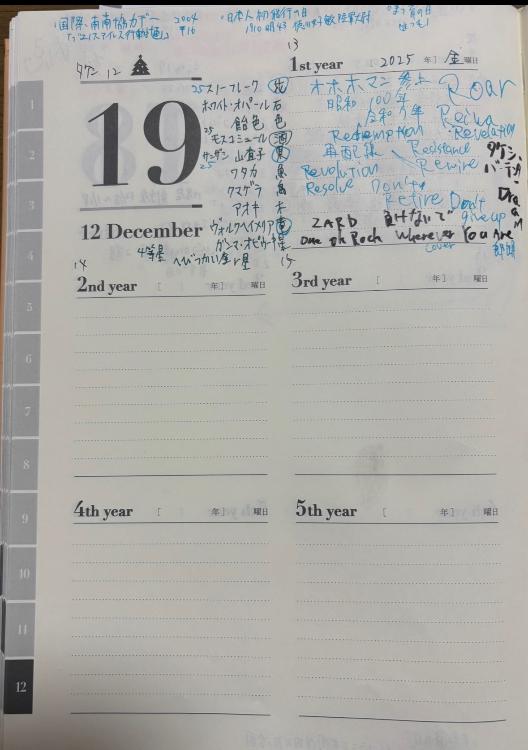 ・国際南南協力デー 2004 H16
・日本人初飛行の日
1910 明43 徳川好敏 陸軍大尉
・まつ育の日
まつも
13
タケシ 12
19
12 December
25 スノーフレーク 花
ホワイト・オパール 石
飴色 色
25 モスコミュール 酒
サンザシ 山査子 果
25
ワタカ 魚
クスゲラ 鳥
アオキ 木
ガンマ・オピウ
4等星
へびつかい座γ星
1st year [ 2025 年] 金曜日
オホホマン 参上
Roar
昭和 100年
令和 7年
Reiwa
Redemption
Revelation
再配集
Resistance
Revolution
Rewire
Resolve
Don't
Retire
Don't
give up
Dream
ZARD 負けないで
One ok Rock Wherever You Are
cover
14
2nd year [ 年] 曜日
15
3rd year [ 年] 曜日
4th year [ 年] 曜日
5th year [ 年] 曜日
1
2
3
4
5
6
7
8
9
10
11
12